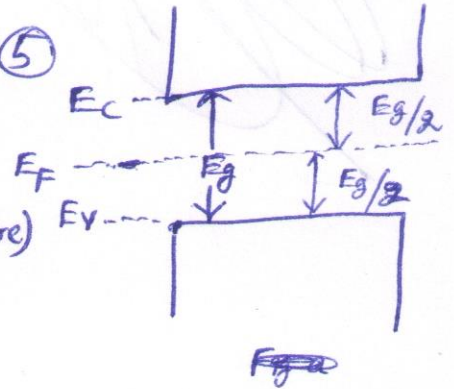 5
E_C
Eg/2
E_F
Eg
Eg/2
re) E_V